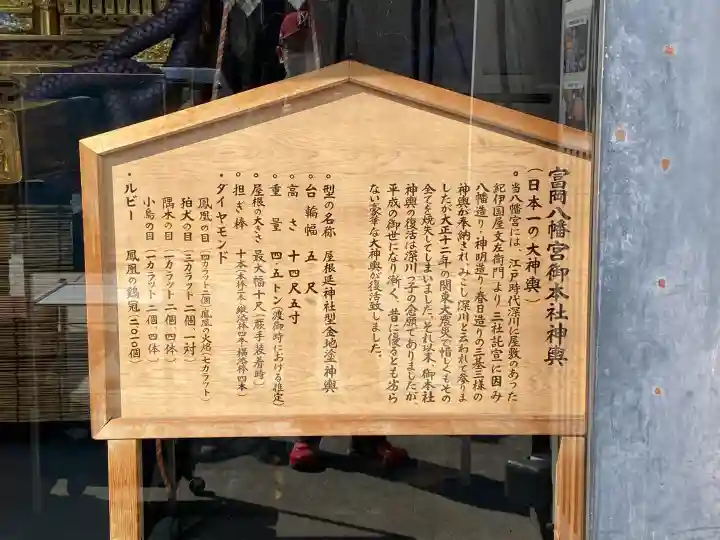 富岡八幡宮御本社神輿
（日本一の大神輿）
。当八幡宮には、江戸時代深川に屋敷のあった
紀伊国屋文左衛門より三社託宣に因み
八幡造り・神明造り・春日造りの三基三様の
神輿が奉納され、みこし深川と云われて参りま
したが大正十二年の関東大震災で惜しくもその
全てを焼失してしまいました。それ以来、御本社
神輿の復活は深川っ子の念願でありましたが、
平成の御世になり漸く、昔に優るとも劣ら
ない豪華な大神輿が復活致しました。
。型の名称　屋根延神社型金地塗神輿
。台輪幅　五尺
。高さ　十四尺五寸
。重量　四・五トン（渡御時における推定）
。屋根の大きさ　最大幅十尺（蕨手装着時）
。担ぎ棒　十本（本棒二本・縦添棒四本・横添棒四本）
・ダイヤモンド
鳳凰の目（四カラット二個）鳳凰の火焔（七カラット）
狛犬の目　三カラット二個、一対
隅木の目　一カラット二個、四体
小鳥の目　一カラット二個、四体
・ルビー　鳳凰の鶏冠（二〇一〇個）